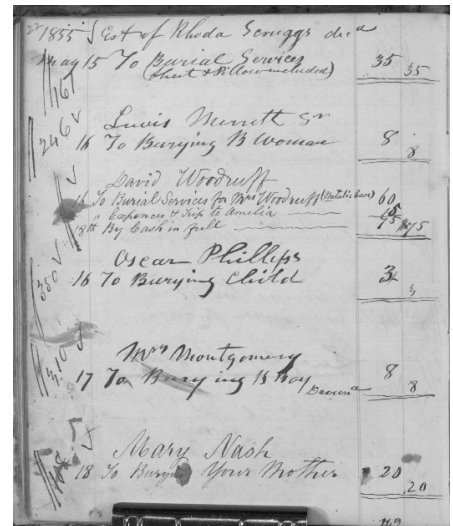 22 1855 Est of Rhoda Scruggs decd
May 15 To Burial Services 35 35
(Sheet & Pillow included)
167
Lewis Merrett Sr
246
16 To Burying B Woman 8 8
David Woodruff
16 To Burial Services for Mrs Woodruff (Metalic Case) 60
" Expences & Trip to Amelia
18th By Cash in full
Oscar Phillips
380
16 To Burying Child 3 3
310
Mrs Montgomery
17 To Burying B Boy 8 8
Mary Nash
18 To Burying Your Mother 20 20